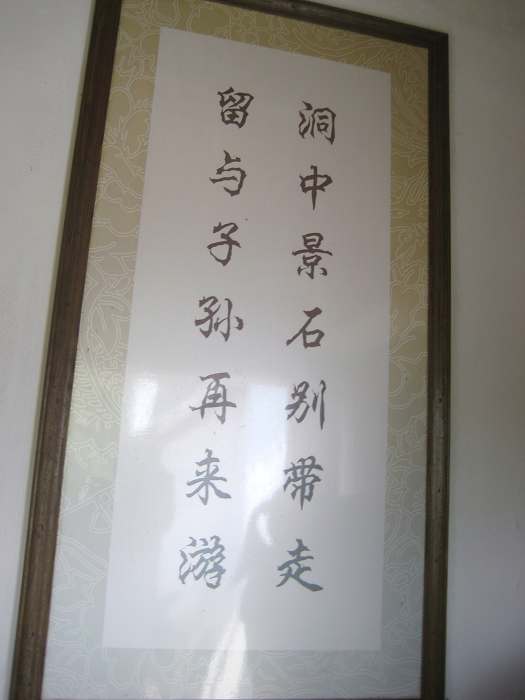 洞中景石别带走
留与子孙再来游